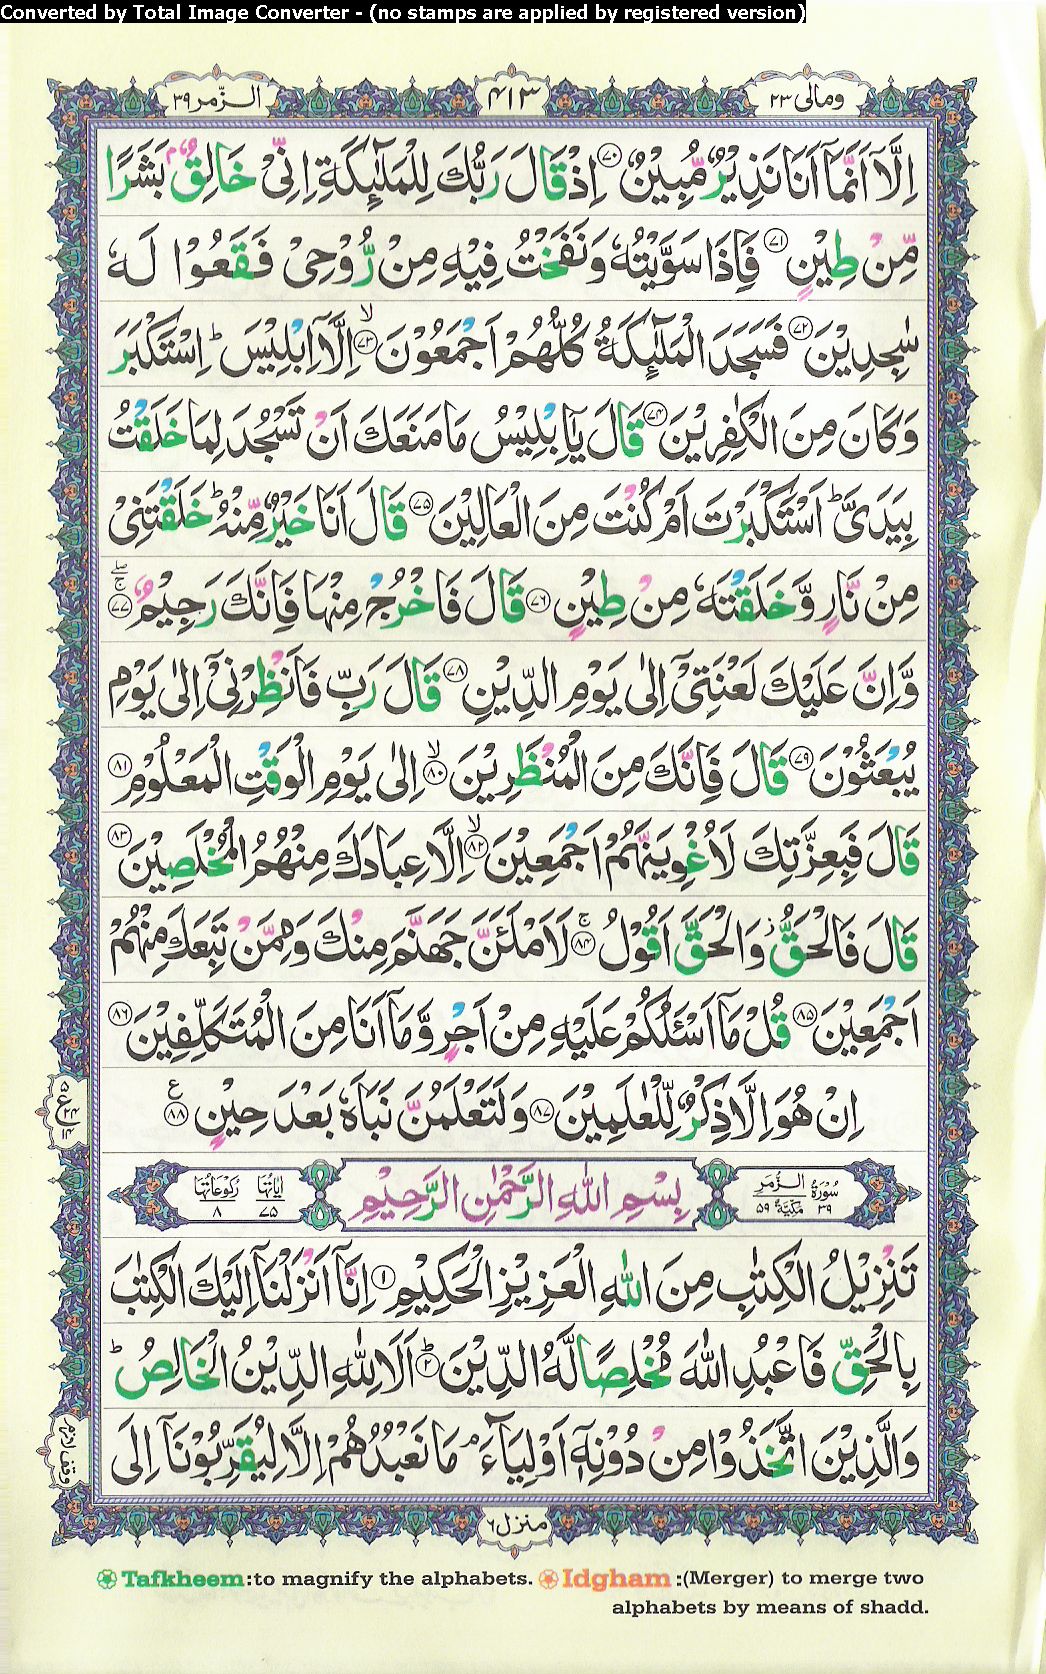 Converted by Total Image Converter - (no stamps are applied by registered version)
ومالی ۲۳
۴۱۳
الزّمر ۳۹
اِلَّاۤ اَنَّمَاۤ اَنَا نَذِیْرٌ مُّبِیْنٌ ۝۷۰ اِذْ قَالَ رَبُّكَ لِلْمَلٰٓىِٕكَةِ اِنِّیْ خَالِقٌۢ بَشَرًا
مِّنْ طِیْنٍ ۝۷۱ فَاِذَا سَوَّیْتُهٗ وَ نَفَخْتُ فِیْهِ مِنْ رُّوْحِیْ فَقَعُوْا لَهٗ
سٰجِدِیْنَ ۝۷۲ فَسَجَدَ الْمَلٰٓىِٕكَةُ كُلُّهُمْ اَجْمَعُوْنَ ۝۷۳ۙ اِلَّاۤ اِبْلِیْسَ ؕ اِسْتَكْبَرَ
وَ كَانَ مِنَ الْكٰفِرِیْنَ ۝۷۴ قَالَ یٰۤاِبْلِیْسُ مَا مَنَعَكَ اَنْ تَسْجُدَ لِمَا خَلَقْتُ
بِیَدَیَّ ؕ اَسْتَكْبَرْتَ اَمْ كُنْتَ مِنَ الْعَالِیْنَ ۝۷۵ قَالَ اَنَا خَیْرٌ مِّنْهُ ؕ خَلَقْتَنِیْ
مِنْ نَّارٍ وَّ خَلَقْتَهٗ مِنْ طِیْنٍ ۝۷۶ قَالَ فَاخْرُجْ مِنْهَا فَاِنَّكَ رَجِیْمٌ ۝۷۷ۚۖ
وَّ اِنَّ عَلَیْكَ لَعْنَتِیْۤ اِلٰی یَوْمِ الدِّیْنِ ۝۷۸ قَالَ رَبِّ فَاَنْظِرْنِیْۤ اِلٰی یَوْمِ
یُبْعَثُوْنَ ۝۷۹ قَالَ فَاِنَّكَ مِنَ الْمُنْظَرِیْنَ ۝۸۰ۙ اِلٰی یَوْمِ الْوَقْتِ الْمَعْلُوْمِ ۝۸۱
قَالَ فَبِعِزَّتِكَ لَاُغْوِیَنَّهُمْ اَجْمَعِیْنَ ۝۸۲ۙ اِلَّا عِبَادَكَ مِنْهُمُ الْمُخْلَصِیْنَ ۝۸۳
قَالَ فَالْحَقُّ ؗ وَ الْحَقَّ اَقُوْلُ ۝۸۴ۚ لَاَمْلَـَٔنَّ جَهَنَّمَ مِنْكَ وَ مِمَّنْ تَبِعَكَ مِنْهُمْ
اَجْمَعِیْنَ ۝۸۵ قُلْ مَاۤ اَسْـَٔلُكُمْ عَلَیْهِ مِنْ اَجْرٍ وَّ مَاۤ اَنَا مِنَ الْمُتَكَلِّفِیْنَ ۝۸۶
اِنْ هُوَ اِلَّا ذِكْرٌ لِّلْعٰلَمِیْنَ ۝۸۷ وَ لَتَعْلَمُنَّ نَبَاَهٗ بَعْدَ حِیْنٍ ۝۸۸ ع
۵ ع ۲۴ ۱۴
سُوْرَةُ الزُّمَرِ ۳۹ مَكِّیَّةٌ ۵۹
بِسْمِ اللّٰهِ الرَّحْمٰنِ الرَّحِیْمِ
اٰیَاتُهَا ۷۵ رُكُوْعَاتُهَا ۸
تَنْزِیْلُ الْكِتٰبِ مِنَ اللّٰهِ الْعَزِیْزِ الْحَكِیْمِ ۝۱ اِنَّاۤ اَنْزَلْنَاۤ اِلَیْكَ الْكِتٰبَ
بِالْحَقِّ فَاعْبُدِ اللّٰهَ مُخْلِصًا لَّهُ الدِّیْنَ ۝۲ؕ اَلَا لِلّٰهِ الدِّیْنُ الْخَالِصُ ؕ
وَ الَّذِیْنَ اتَّخَذُوْا مِنْ دُوْنِهٖۤ اَوْلِیَآءَ ۘ مَا نَعْبُدُهُمْ اِلَّا لِیُقَرِّبُوْنَاۤ اِلَی
وقف لازم
منزل ۶
Tafkheem :to magnify the alphabets. Idgham :(Merger) to merge two
alphabets by means of shadd.